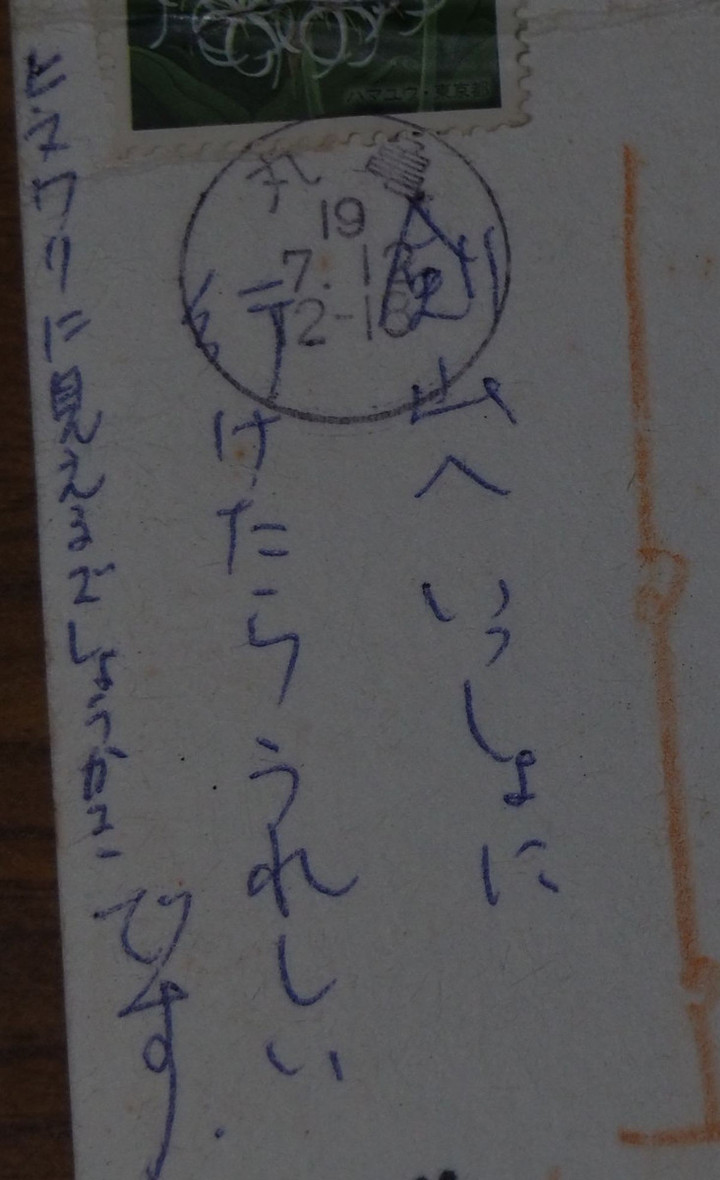 ハマユウ・東京都
丸
19
7.12
12-18
山へ いっしょに
行けたらうれしい
です
ヒマワリに見えるでしょうかネー